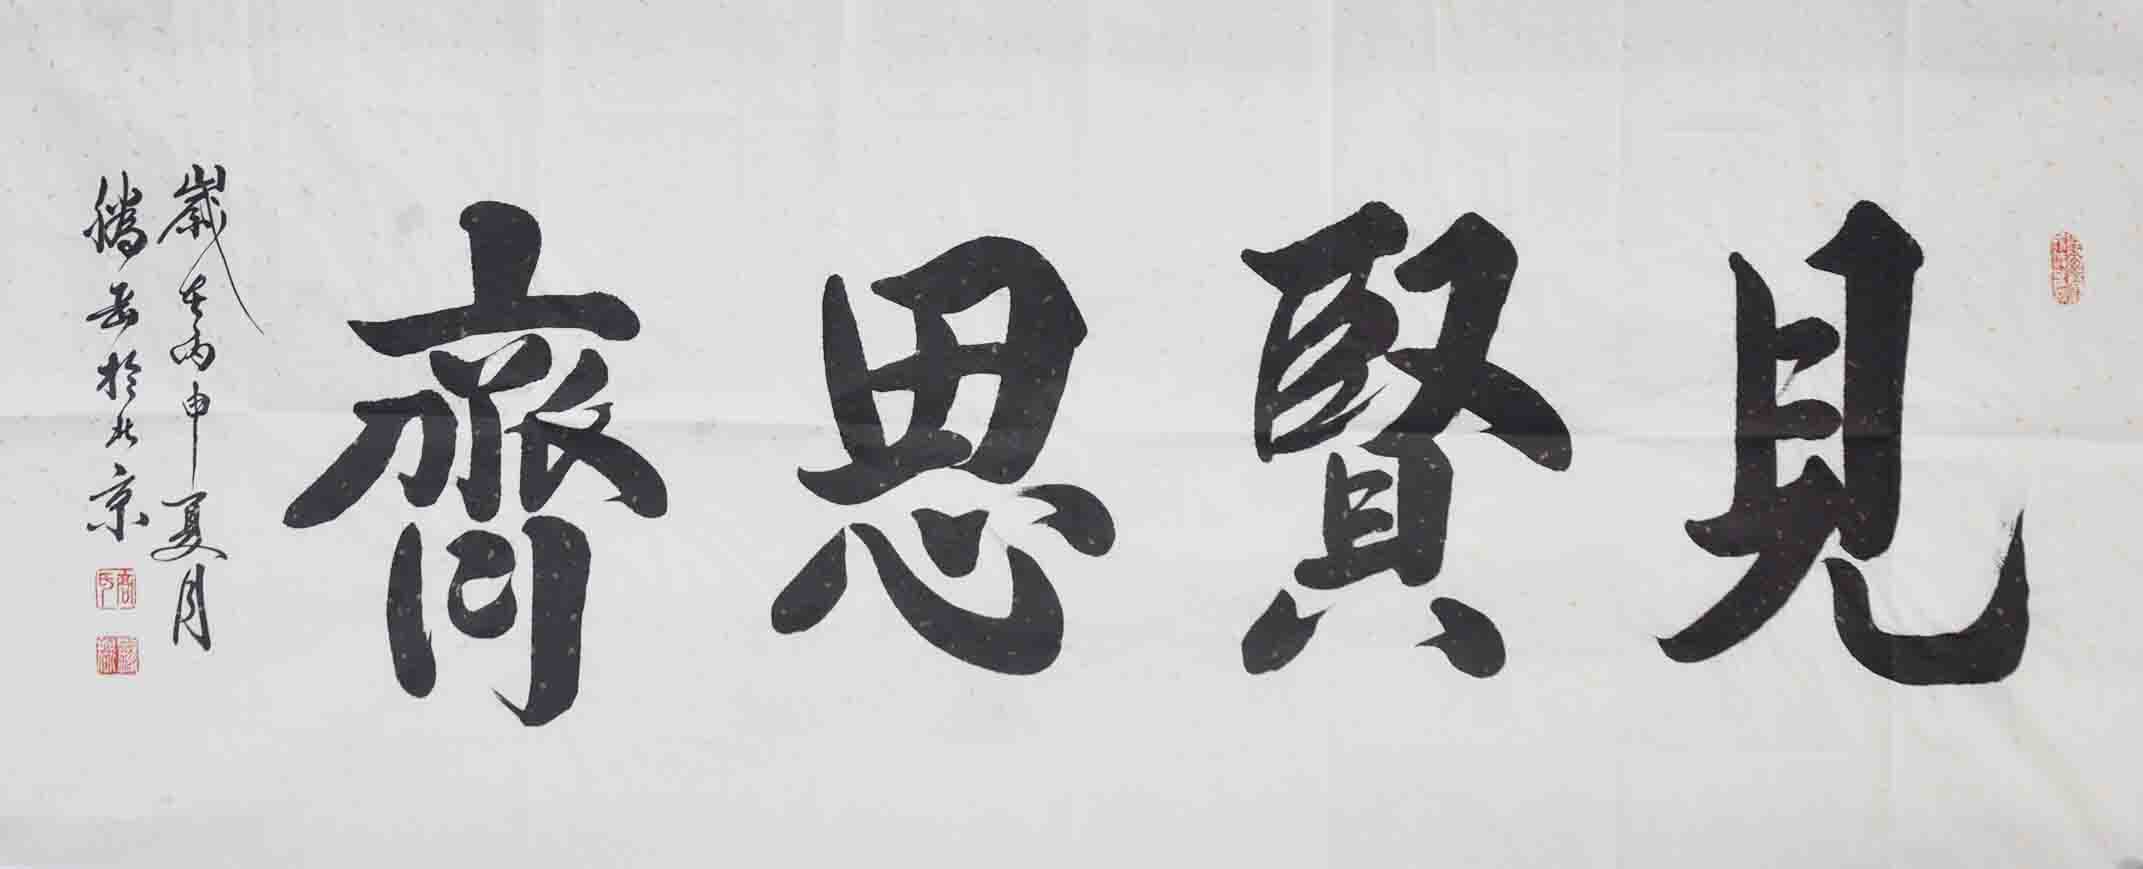 見賢思齊
歲在丙申夏月
騰岳於北京